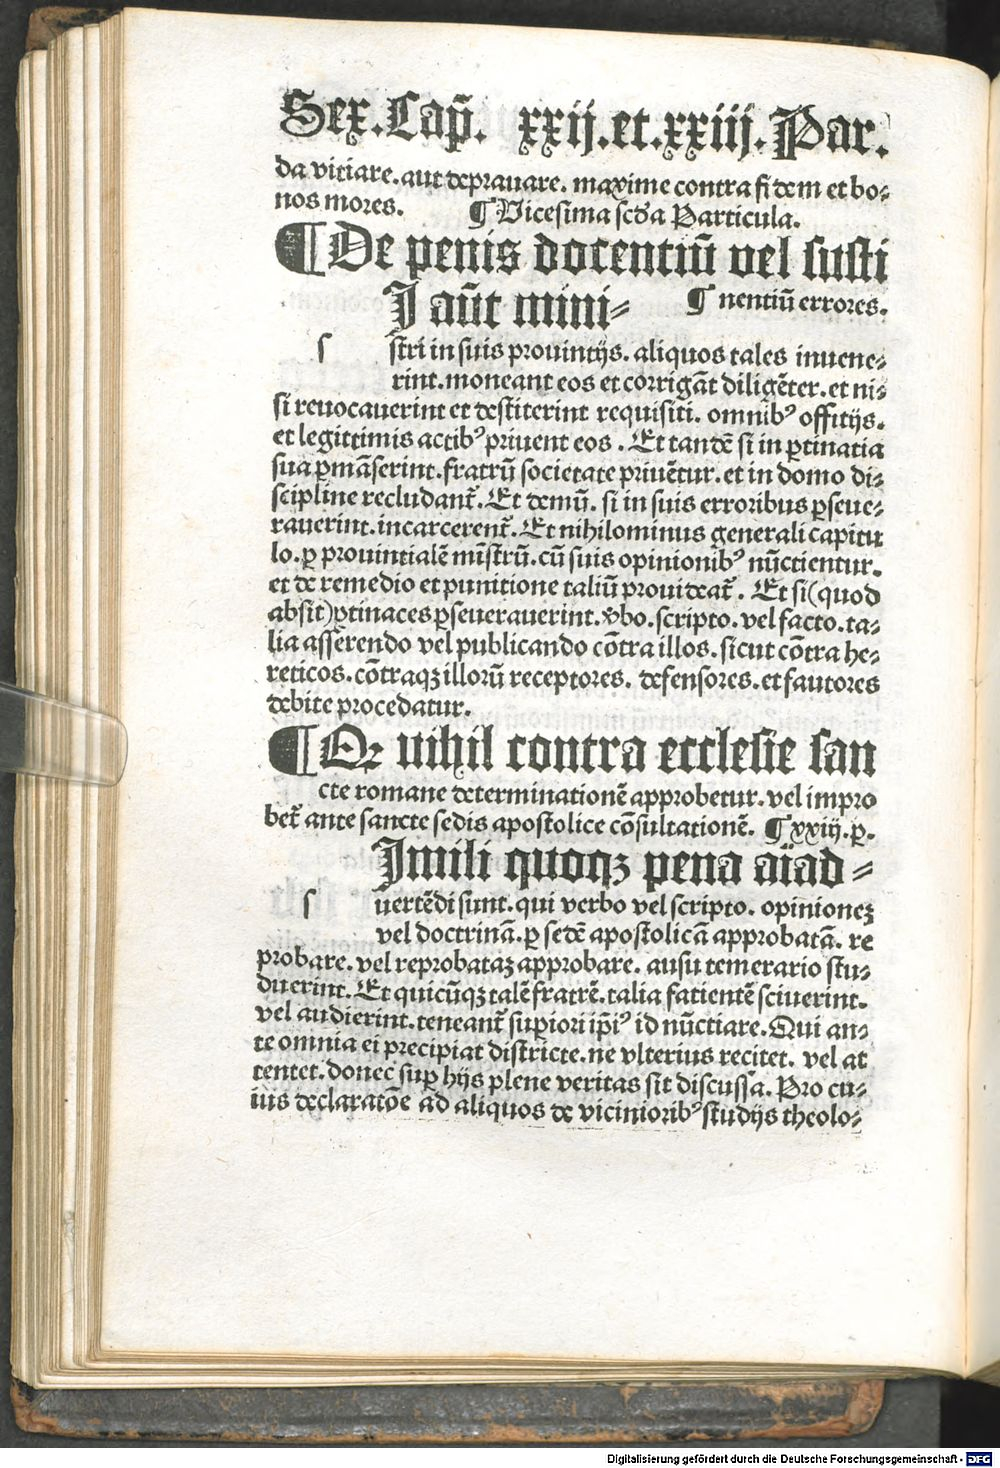 Sex. Cap̃. xxij. et. xxiij. Par.
da vitiare. aut deprauare. maxime contra fidem et bo⸗
nos mores. ¶ Vicesima scða Particula.
¶ De penis docentiũ vel susti
I aũt mini⸗ ¶ nentiũ errores.
ſ stri in suis prouintijs. aliquos tales inuene⸗
rint. moneant eos et corrigãt diligẽter. et ni⸗
si reuocauerint et destiterint requisiti. omnibꝰ offitijs.
et legittimis actibꝰ priuent eos. Et tandẽ si in ꝑtinatia
sua ꝑmãserint. fratrũ societate priuẽtur. et in domo di⸗
scipline recludant̃. Et demũ. si in suis erroribus ꝑseue⸗
rauerint. incarcerent̃. Et nihilominus generali capitu
lo. ꝑ prouintialẽ mĩstrũ. cũ suis opinionibꝰ nũctientur.
et de remedio et punitione taliũ prouideat̃. Et si (quod
absit) ꝑtinaces ꝑseuerauerint. v̾bo. scripto. vel facto. ta⸗
lia asserendo vel publicando cõtra illos. sicut cõtra he⸗
reticos. cõtraqꝫ illorũ receptores. defensores. et fautores
debite procedatur.
¶ Qꝛ nihil contra ecclesie san
cte romane determinationẽ approbetur. vel impro
bet̃ ante sancte sedis apostolice cõsultationẽ. ¶ xxiij. p.
Imili quoqꝫ pena aĩad⸗
ſ uertẽdi sunt. qui verbo vel scripto. opinioneꝫ
vel doctrinã. ꝑ sedẽ apostolicã approbatã. re
probare. vel reprobataꝫ approbare. ausu temerario stu⸗
duerint. Et quicũqꝫ talẽ fratrẽ. talia fatientẽ sciuerint.
vel audierint. teneant̃ suꝑiori ip̃iꝰ id nũctiare. Qui an⸗
te omnia ei precipiat districte. ne vlterius recitet. vel at
tentet. donec suꝑ hijs plene veritas sit discussa. Pro cu⸗
ius declaratõe ad aliquos de viciniori bꝰ studijs theolo⸗
Digitalisierung gefördert durch die Deutsche Forschungsgemeinschaft - DFG